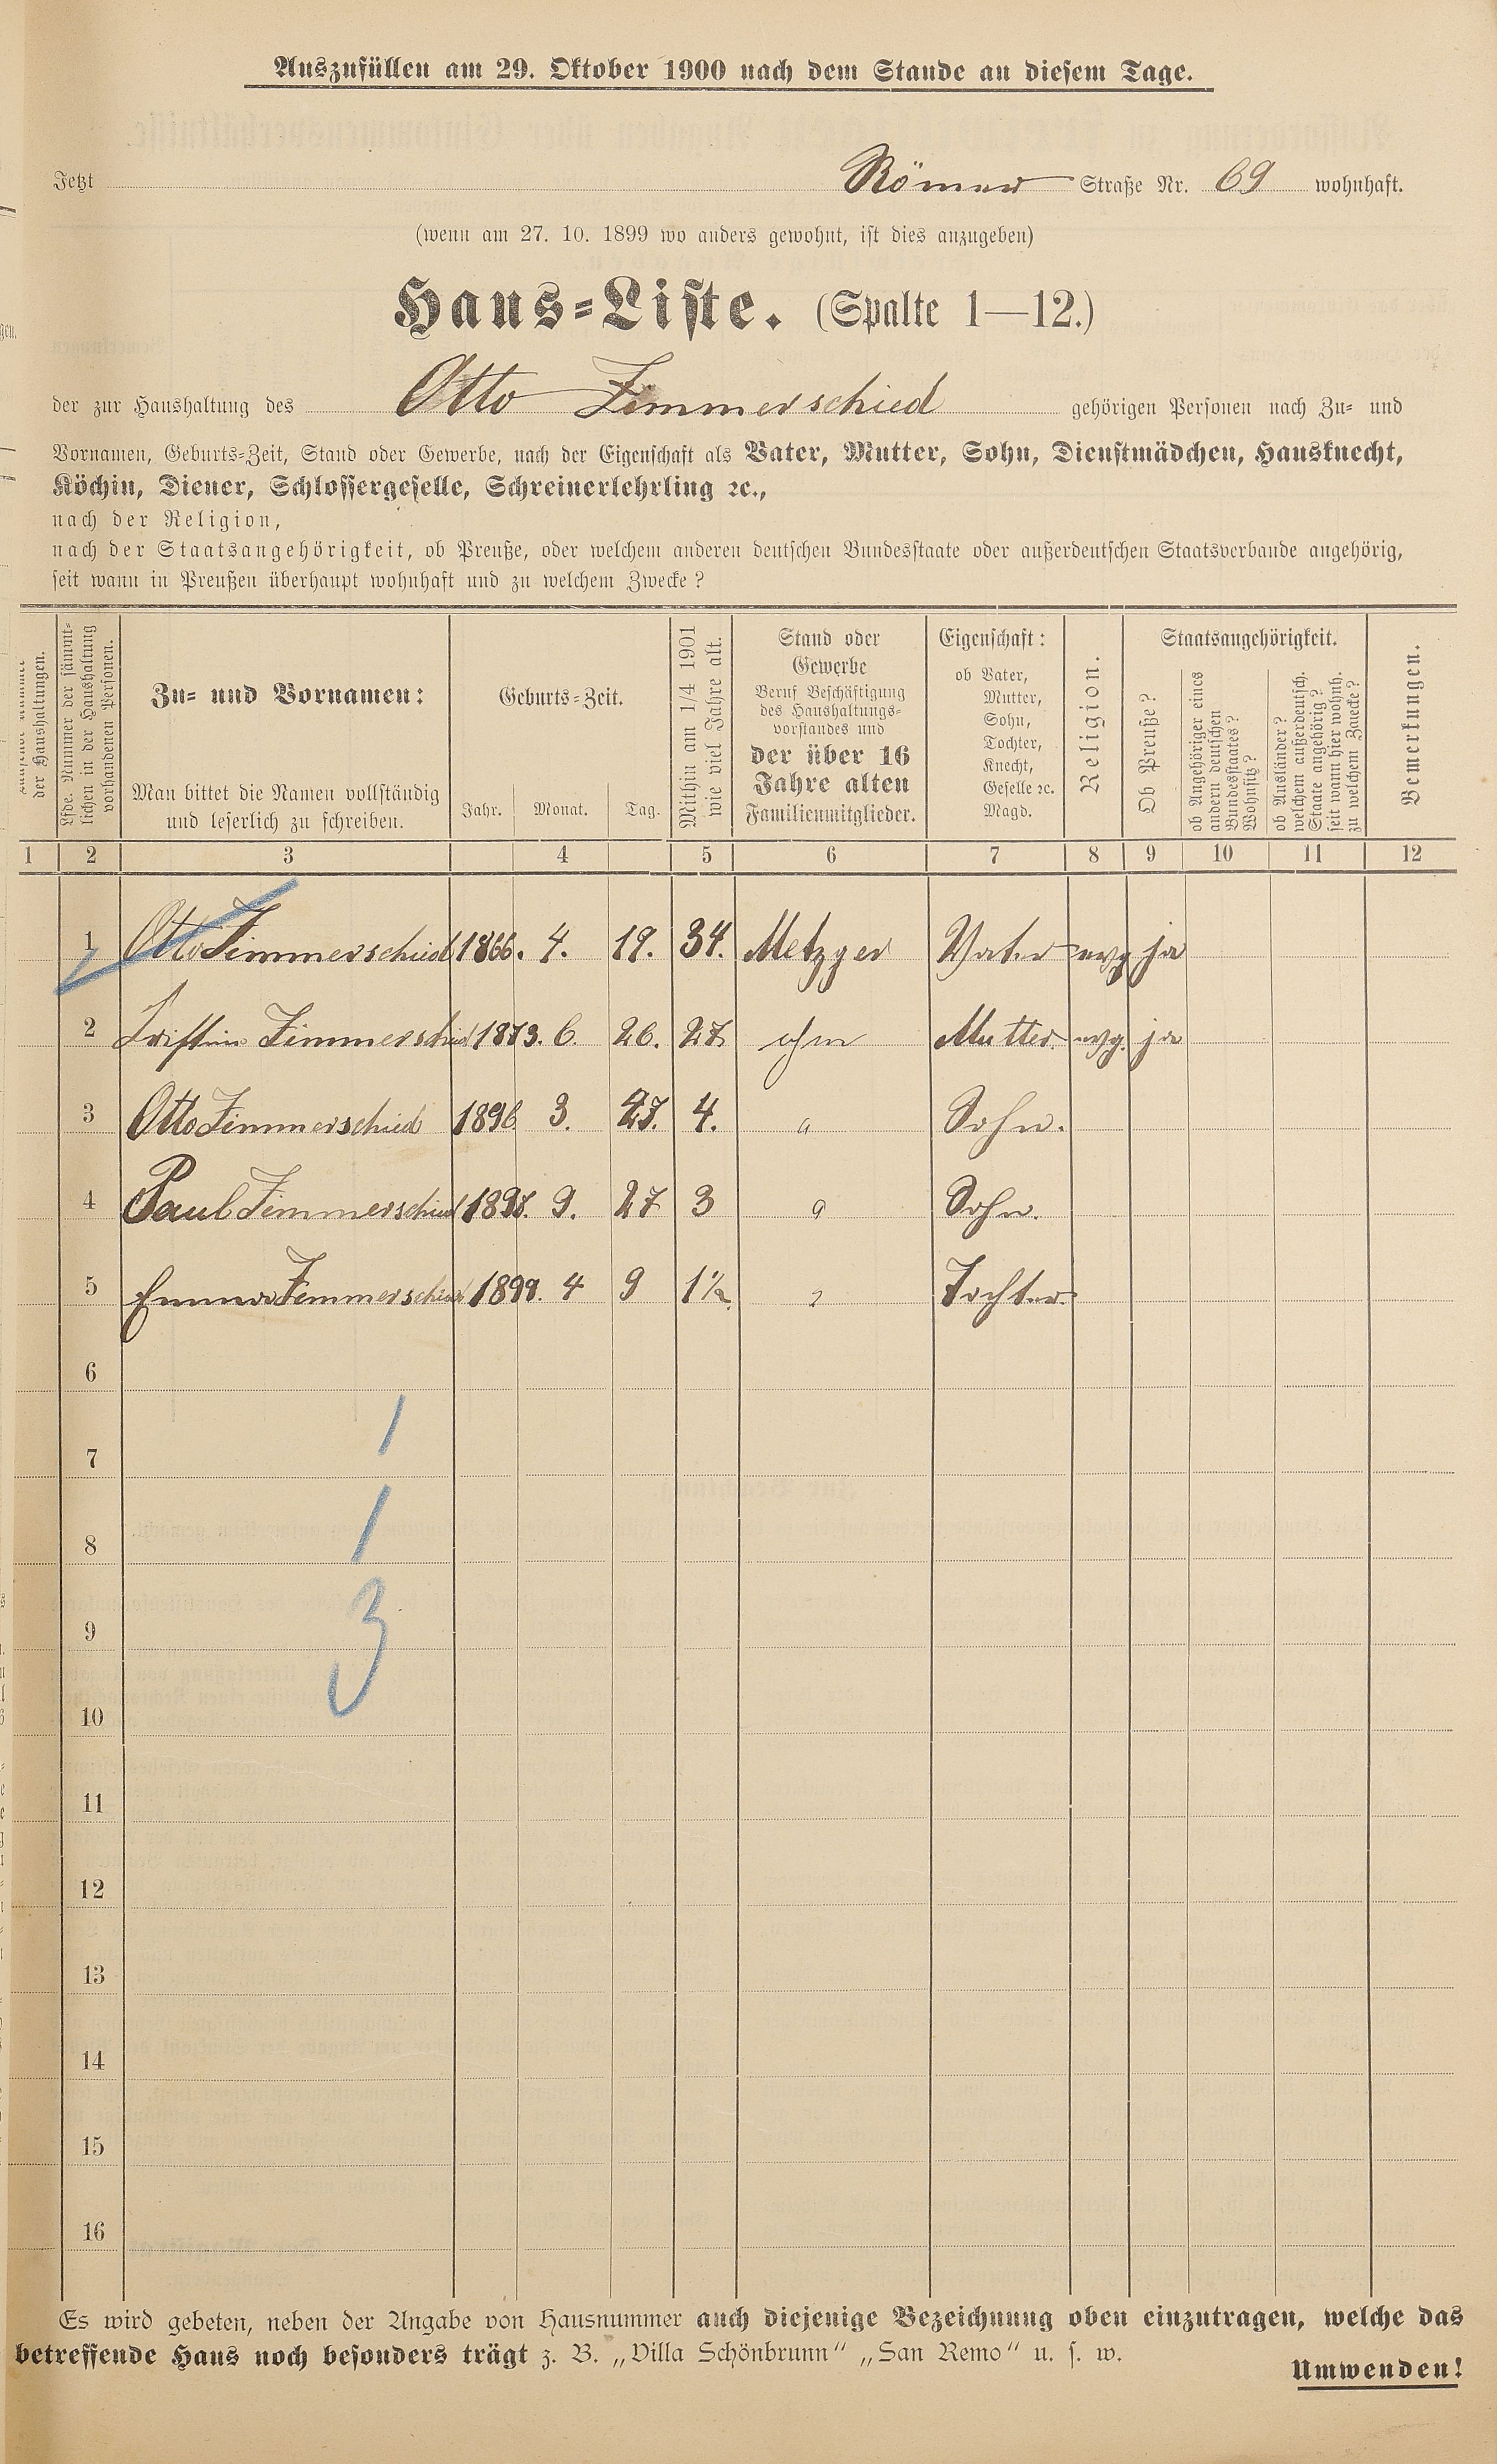 Auszufüllen am 29. Oktober 1900 nach dem Stande an diesem Tage.
Jetzt Römer Straße Nr. 69 wohnhaft.
(wenn am 27. 10. 1899 wo anders gewohnt, ist dies anzugeben)
Haus-Liste. (Spalte 1—12.)
der zur Haushaltung des Otto Zimmerschied gehörigen Personen nach Zu- und
Vornamen, Geburts-Zeit, Stand oder Gewerbe, nach der Eigenschaft als Vater, Mutter, Sohn, Dienstmädchen, Hausknecht,
Köchin, Diener, Schlossergeselle, Schreinerlehrling ꝛc.,
nach der Religion,
nach der Staatsangehörigkeit, ob Preuße, oder welchem anderen deutschen Bundesstaate oder außerdeutschen Staatsverbande angehörig,
seit wann in Preußen überhaupt wohnhaft und zu welchem Zwecke?
der Haushaltungen.
Lfde. Nummer der sämmt-
lichen in der Haushaltung
vorhandenen Personen.
Zu- und Vornamen:
Man bittet die Namen vollständig
und leserlich zu schreiben.
Geburts-Zeit.
Jahr. Monat. Tag.
Mithin am 1/4 1901
wie viel Jahre alt.
Stand oder
Gewerbe
Beruf Beschäftigung
des Haushaltungs-
vorstandes und
der über 16
Jahre alten
Familienmitglieder.
Eigenschaft:
ob Vater,
Mutter,
Sohn,
Tochter,
Knecht,
Geselle ꝛc.
Magd.
Religion.
Staatsangehörigkeit.
Ob Preuße?
ob Angehöriger eines
andern deutschen
Bundesstaates?
Wohnsitz?
ob Ausländer?
welchem außerdeutsch.
Staate angehörig?
seit wann hier wohnh.
zu welchem Zwecke?
Bemerkungen.
1 2 3 4 5 6 7 8 9 10 11 12
1 Otto Zimmerschied 1866. 4. 19. 34. Metzger Vater evg ja
2 Zimmerschied 1873. 6. 26. 27 Mutter evg. ja
3 Otto Zimmerschied 1896 3. 27. 4. " Sohn.
4 Paul Zimmerschied 1897. 9. 27 3 " Sohn.
5 Emma Zimmerschied 1899. 4 9 1½ " Tochter
6
7
8
9
10
11
12
13
14
15
16
1
1
3
Es wird gebeten, neben der Angabe von Hausnummer auch diejenige Bezeichnung oben einzutragen, welche das
betreffende Haus noch besonders trägt z. B. „Villa Schönbrunn" „San Remo" u. s. w.
Umwenden!